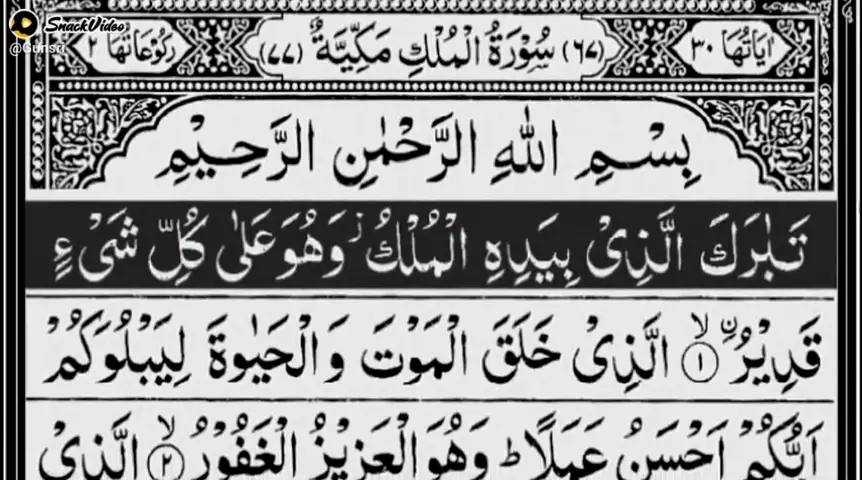 SnackVideo
@Gunsri
اٰیَاتُهَا ٣٠ (٦٧) سُوْرَةُ الْمُلْكِ مَكِّیَّةٌ (٧٧) رُكُوْعَاتُهَا ٢
بِسْمِ اللّٰهِ الرَّحْمٰنِ الرَّحِیْمِ
تَبٰرَكَ الَّذِیْ بِیَدِهِ الْمُلْكُ ز وَهُوَ عَلٰی كُلِّ شَیْءٍ
قَدِیْرُ ۨ ۙ ١ الَّذِیْ خَلَقَ الْمَوْتَ وَالْحَیٰوةَ لِیَبْلُوَكُمْ
اَیُّكُمْ اَحْسَنُ عَمَلًا ؕ وَهُوَ الْعَزِیْزُ الْغَفُوْرُ ۙ ٢ الَّذِیْ